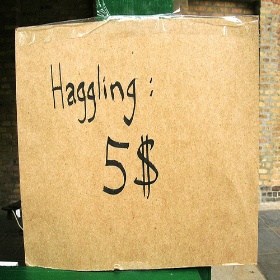 Haggling:
5$